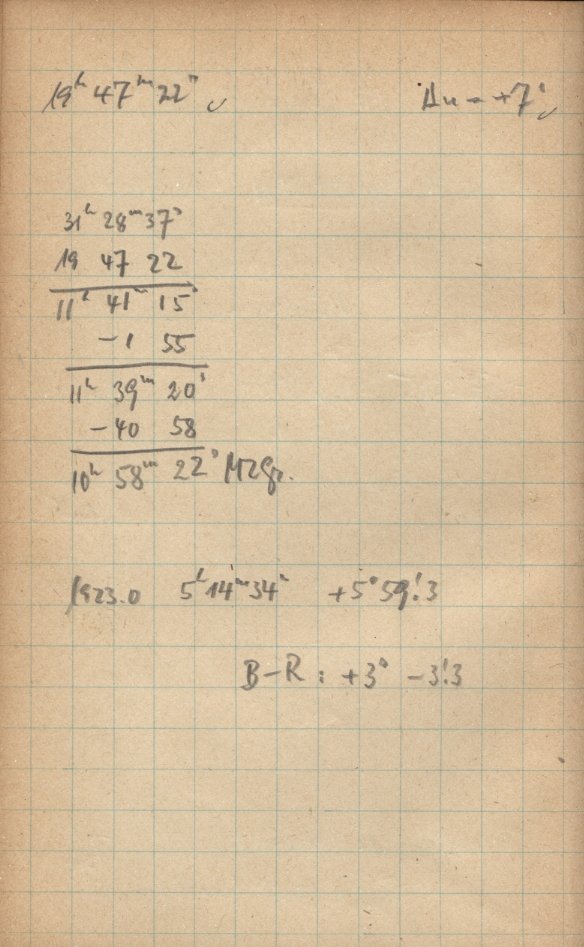 19ʰ 47ᵐ 22ˢ ✓ Δu = +7ˢ ✓
31ʰ 28ᵐ 37ˢ
19 47 22
11ʰ 41ᵐ 15ˢ
-1 55
11ʰ 39ᵐ 20ˢ
-40 58
10ʰ 58ᵐ 22ˢ MZGr.
1923.0 5ʰ 14ᵐ 34ˢ +5° 59!3
B-R : +3ˢ -3!3